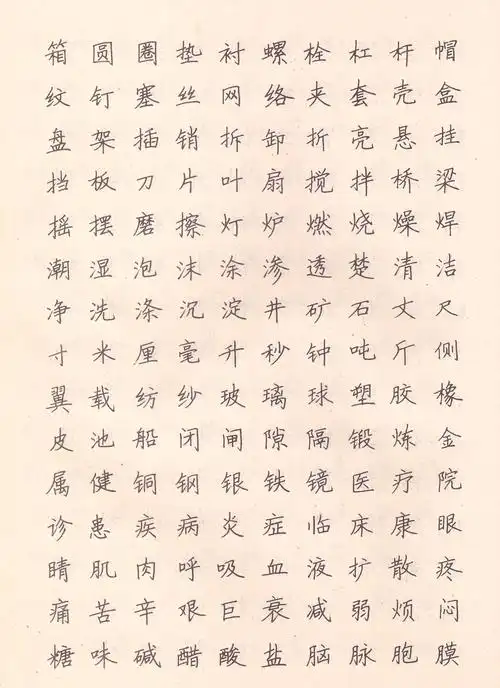 箱圆圈垫衬螺栓杠杆帽
纹钉塞丝网络夹套壳盒
盘架插销拆卸折亮悬挂
挡板刀片叶扇搅拌桥梁
摇摆磨擦灯炉燃烧燥焊
潮湿泡沫涂渗透楚清洁
净洗涤沉淀井矿石丈尺
寸米厘毫升秒钟吨斤侧
翼载纺纱玻璃球塑胶橡
皮池船闭闸隙隔锻炼金
属健铜钢银铁镜医疗院
诊患疾病炎症临床康眼
睛肌肉呼吸血液扩散疼
痛苦辛艰巨衰减弱烦闷
糖味碱醋酸盐脑脉胞膜